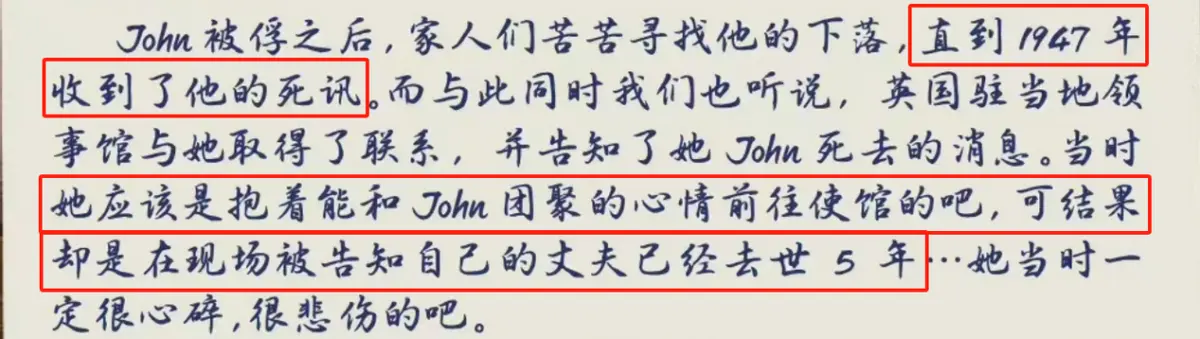 John被俘之后,家人们苦苦寻找他的下落,直到1947年
收到了他的死讯。而与此同时我们也听说，英国驻当地领
事馆与她取得了联系，并告知了她John死去的消息。当时
她应该是抱着能和John团聚的心情前往使馆的吧,可结果
却是在现场被告知自己的丈夫已经去世5年…她当时一
定很心碎,很悲伤的吧。